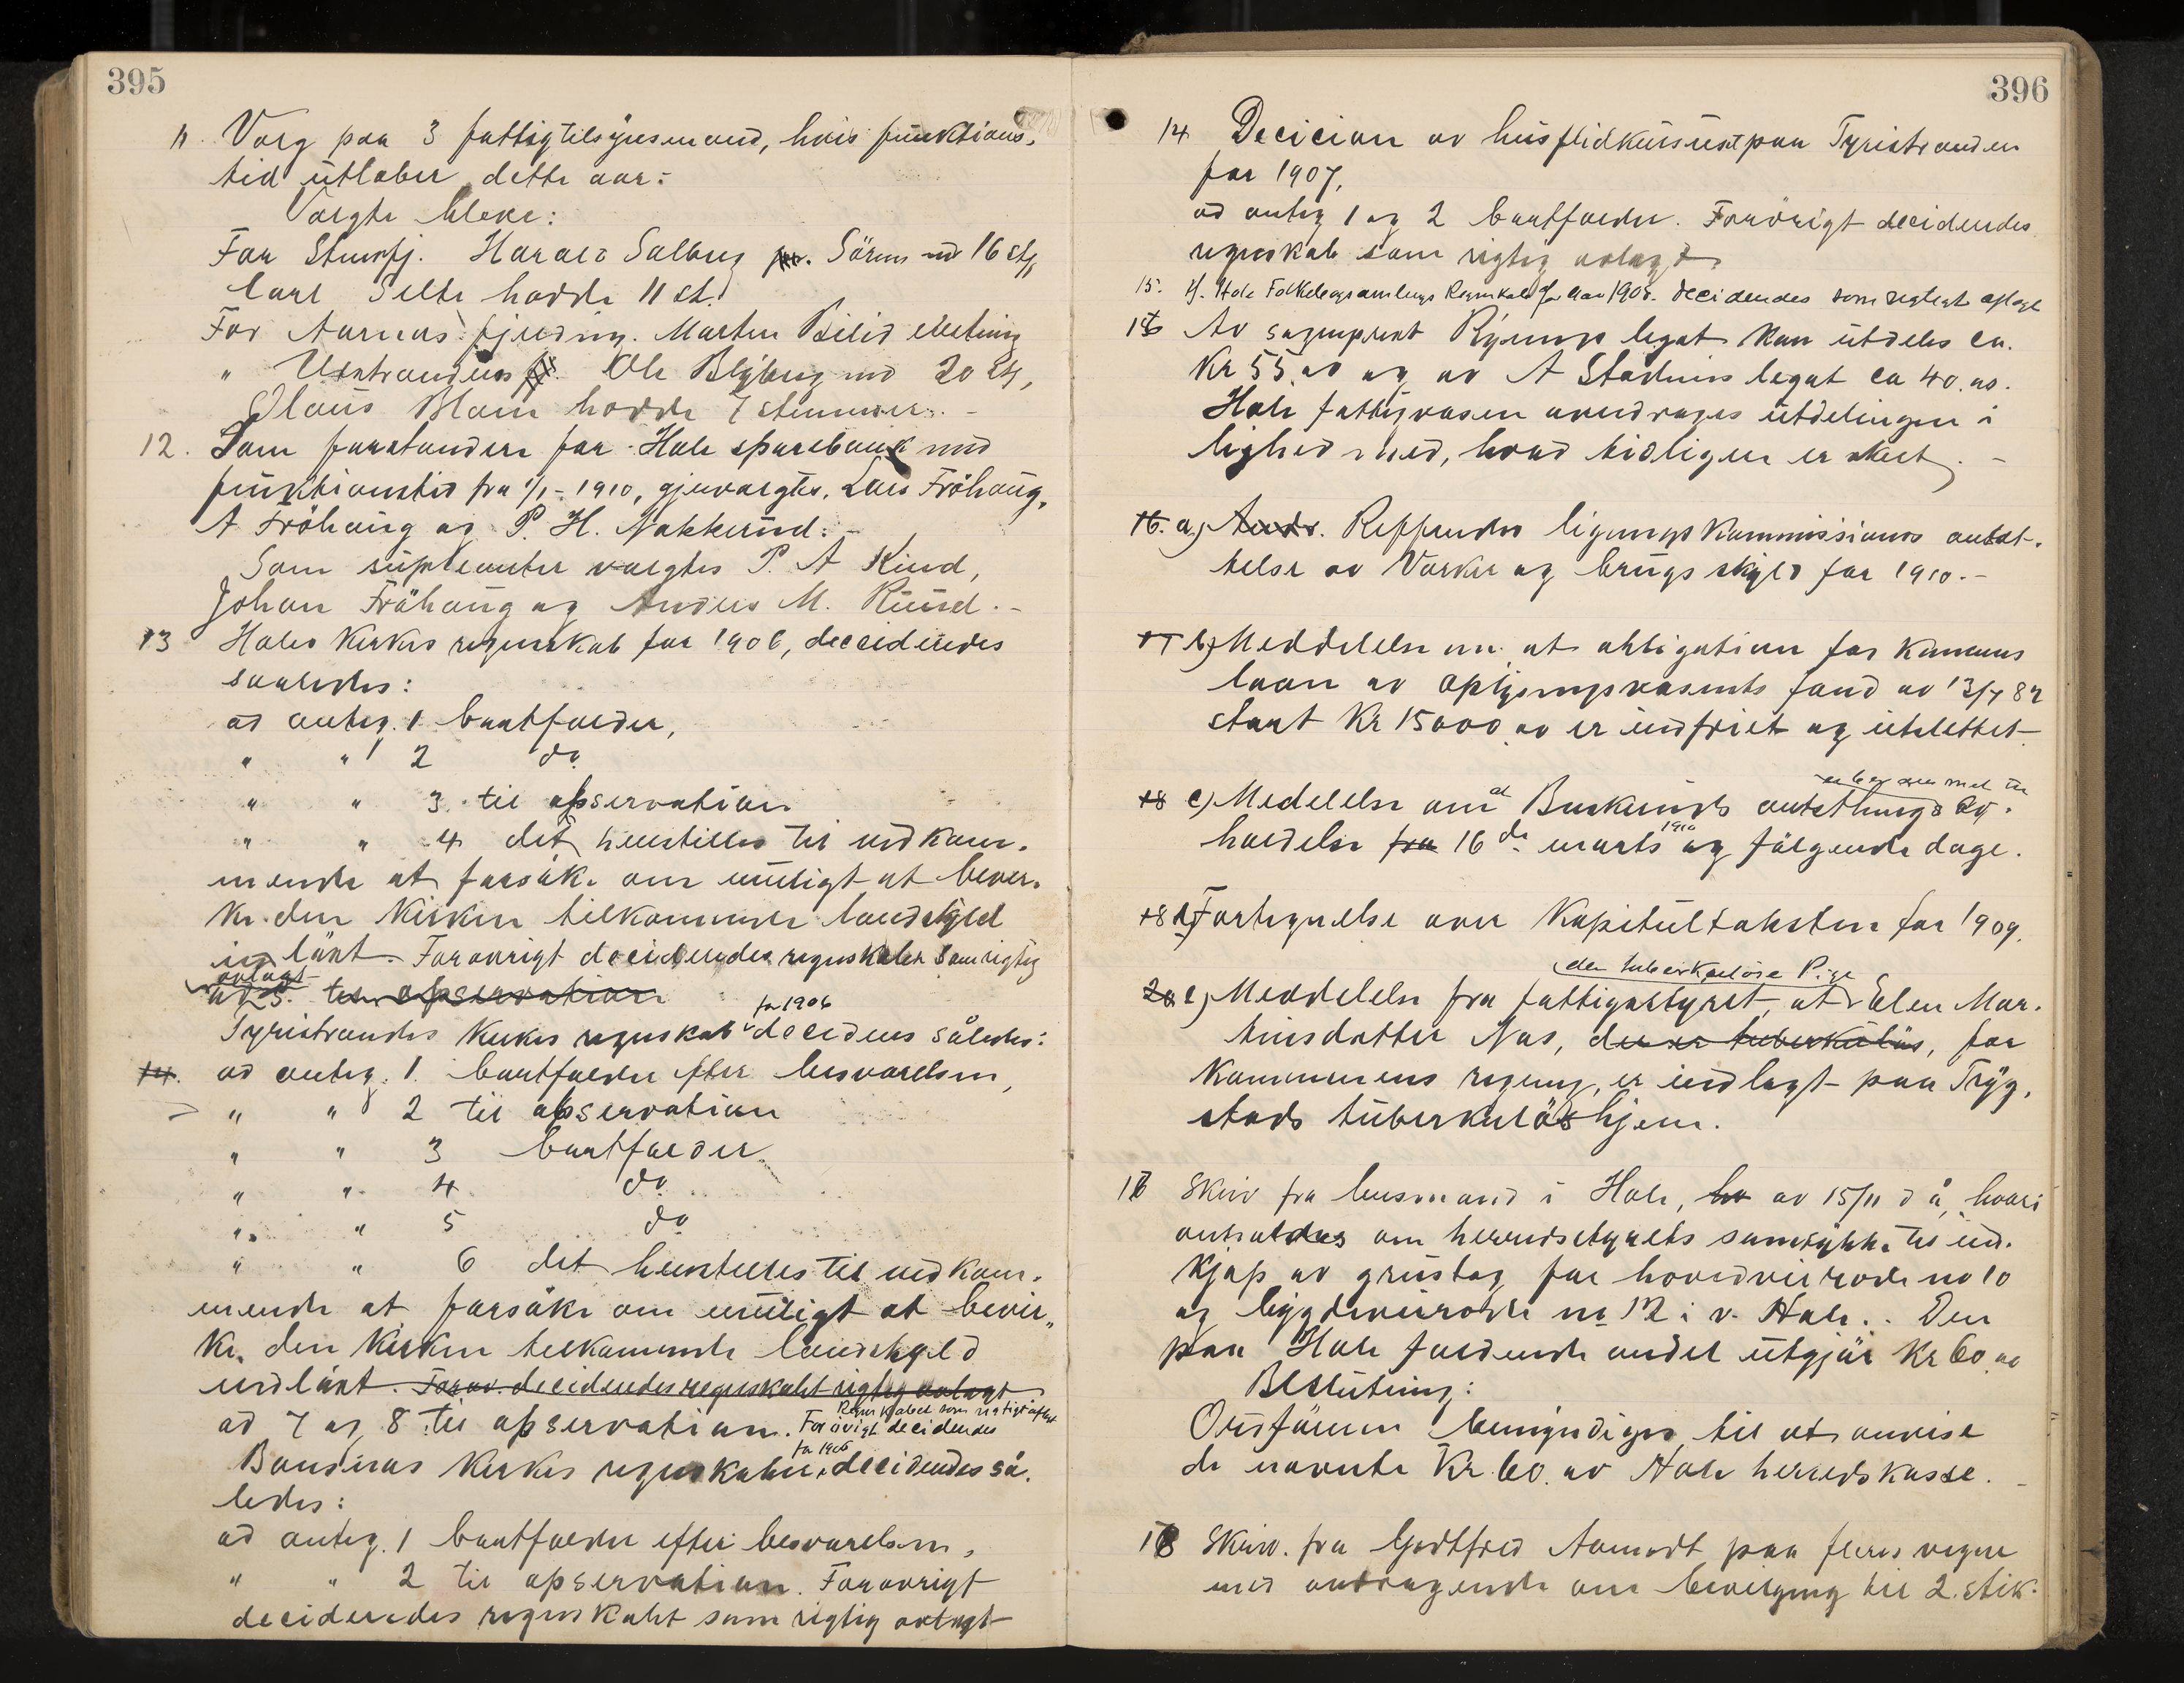 395
11. Valg paa 3 fattigtilsynsmænd, hvis funktions-
tid utløber dette aar:
Valgte bleve:
For Stensfj. Harald Solberg Sörum med 16 st,
Carl Selte hadde 11 st.
For Aarnas fjerding. Marten Bilid enstemig
" Utstrandens Ole Blyberg med 20 st,
Olaus Moen hadde 7 stemmer. -
12. Som forstandere for Hole sparebank med
funktionstid fra 1/1 - 1910, gjenvalgtes, Lars Fröhaug,
A Fröhaug og P. H. Nakkerud. -
Som suppleanter valgtes P. A Rud,
Johan Fröhaug og Anders M. Ruud. -
13 Holes Kirkes regnskab for 1906, decideredes
saaledes:
ad anteg. 1 bortfalder,
" " 2 do
" " 3 til observation
" " 4 det henstilles til vedkom-
mende at forsøke om muligt at bevir-
ke den Kirken tilkommende landskyld
indløst. Forøvrigt decideredes regnskabet som rigtig
avlagt
ad 5. til observation
Tyristrandes Kirkes regnskab for 1906 decideres således:
14. ad anteg. 1. bortfalder efter besvarelsen,
" " 2 til observation
" " 3 bortfalder
" " 4 do
" " 5 do
" " 6 det henstilles til vedkom-
mende at forsøke om muligt at bevir-
ke den Kirken tilkommende landskyld
indløst. Forøv. decideredes regnskabet rigtig avlagt
ad 7 og 8 til observation. Forøvrigt decideredes Regnskabet som rigtigt aflagt
Bønsnes Kirkes regnskab for 1906, decideredes så-
ledes:
ad anteg. 1 bortfalder efter besvarelsen,
" " 2 til observation. Forøvrigt
decideredes regnskabet som rigtig avlagt
396
14 Decision av husflidkursuset paa Tyristranden
for 1907,
ad anteg 1 og 2 bortfalder. Forøvrigt decideredes
regnskab som rigtig avlagt
15. Hole Folkebogsamlings Regnskab for Aar 1908. decideredes som rigtigt aflagt
16 Av sogneprest Ryenngs legat kan utdeles ca.
Kr 55.00 og av A Stadums legat ca 40.00.
Hole fattigvæsen overdrages utdelingen i
lighed med, hvad tidligere er skeet. -
16. a) Andr. Referertes ligningskommissionens ansæt-
telse av Verker og brugs skyld for 1910. -
17 b) Meddelelse om at obligation for Kommunens
laan av oplysningsvæsenets fond av 13/7 82
stort Kr 15000.00 er indfriet og utslettet
18 c) Meddelelse om at Buskeruds amtsthings av-
holdelse fra 16de marts 1910 og følgende dage.
18 d) Fortegnelse over Kapitultaksten for 1909.
den tuberkuløse Pige
20 e) Meddelelse fra fattigstyret, at Elen Mar-
tinsdatter Næs, der er tuberkuløs, for
Kommunens regning, er indlagt paa Tryg-
stads tuberkuløshjem.
17 Skriv fra lensmand i Hole, av 15/11 d å, hvori
anholdes om herredsstyrets samtykke til ind-
kjøp av grustag for hovedveirode no 10
og bygdeveirode no 12 i v. Hole. Den
paa Hole faldende andel utgjør Kr 60.00
Beslutning:
Ordføreren bemyndiges til at anvise
de nævnte Kr. 60. av Hole herredskasse. -
18 Skriv. fra Godtfred Aamodt paa fleres vegne
med andragende om bevilgning til 2. stik-